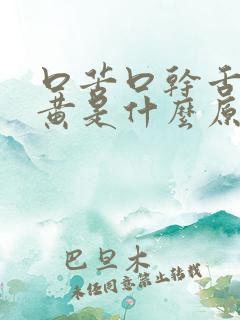 口苦口幹舌
黃是什麼原
巴旦木
未經同意禁止轉載